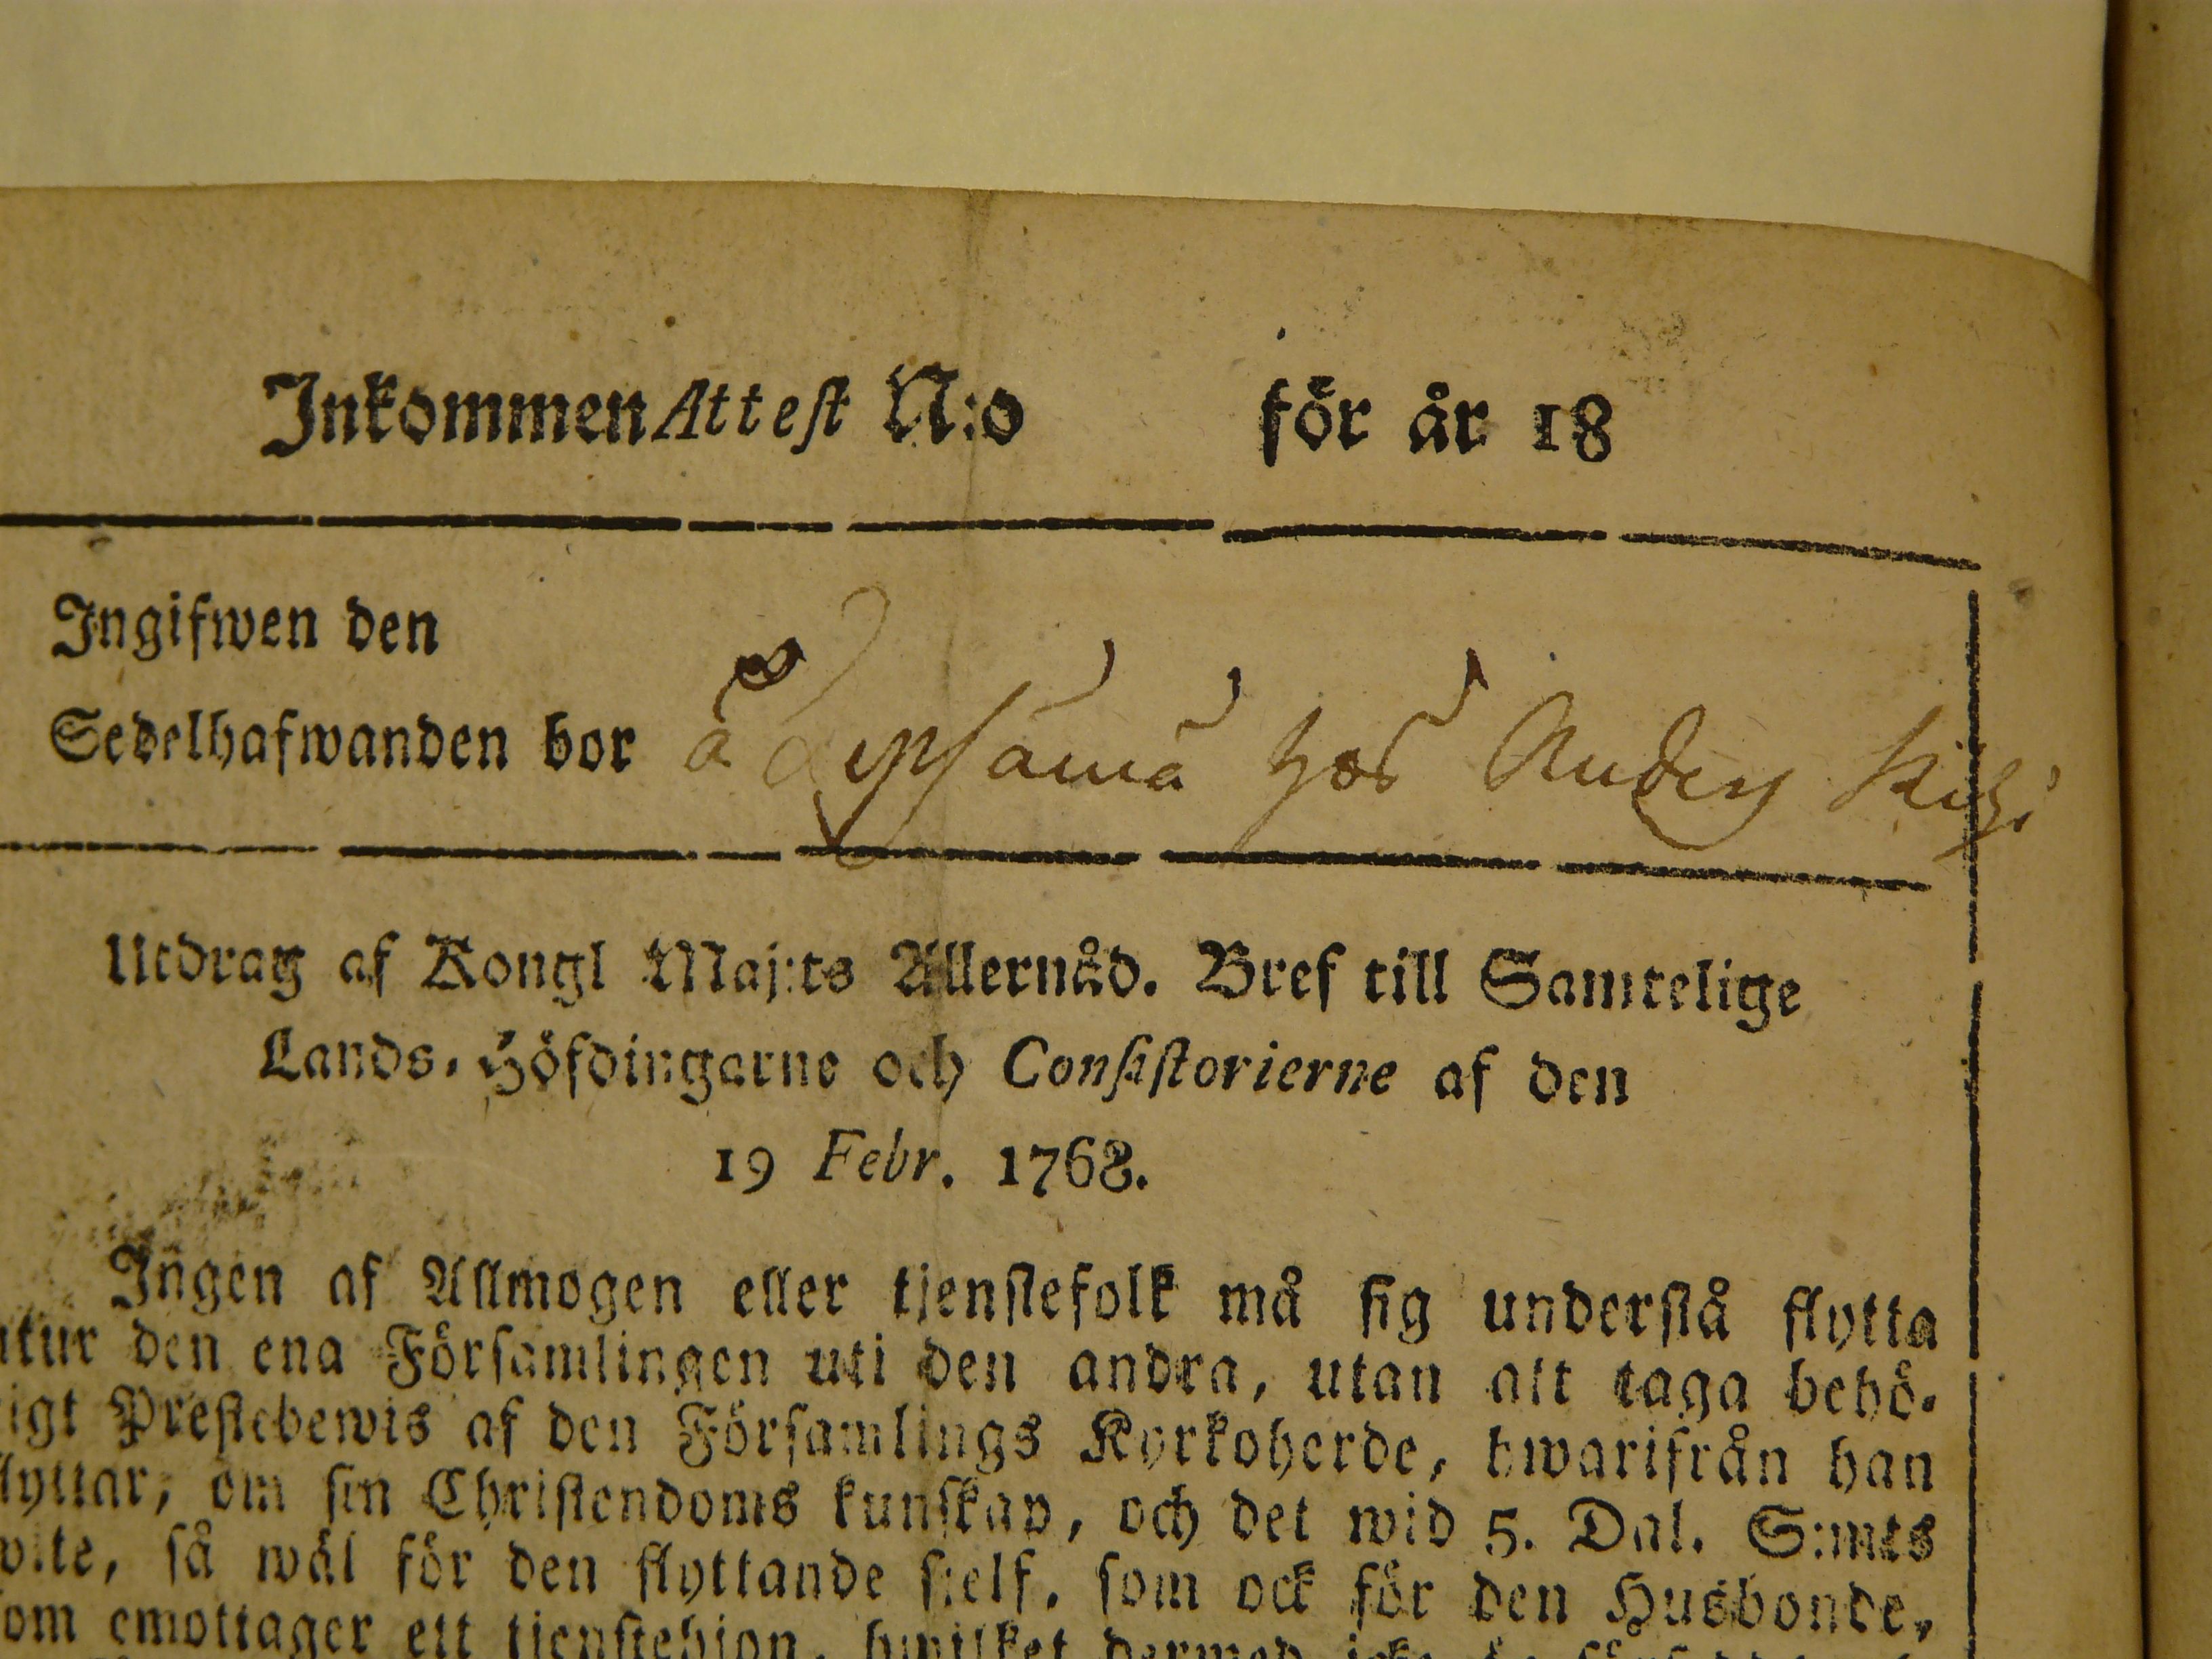 Inkommen Attest N:o för år 18
Ingifwen den
Sedelhafwanden bor å hos Anders
Utdrag af Kongl Maj:ts Allernåd. Bref till Samtelige
Lands-Höfdingarne och Consistorierne af den
19 Febr. 1768.
Ingen af Allmogen eller tjenstefolk må sig understå flytta
utur den ena Församlingen uti den andra, utan att taga behö-
igt Prestebewis af den Församlings Kyrkoherde, hwarifrån han
flyttar, om sin Christendoms kunskap, och det wid 5. Dal. S:mts
wite, så wäl för den flyttande sjelf, som ock för den Husbonde,
som emottager ett tjenstehjon, hwilket dermed icke är